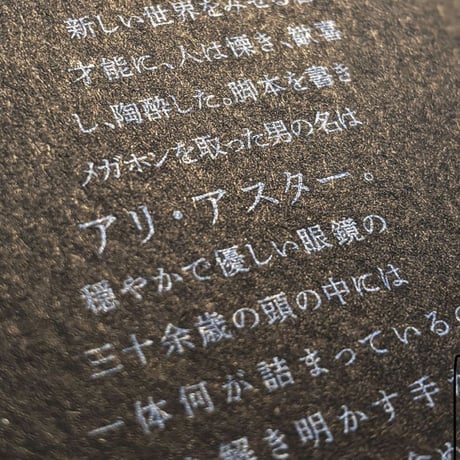 新しい世界をみせる
才能に、人は慄き、歓喜
し、陶酔した。脚本を書き
メガホンを取った男の名は
アリ・アスター。
穏やかで優しい眼鏡の
三十余歳の頭の中には
一体何が詰まっているの
解き明かす手